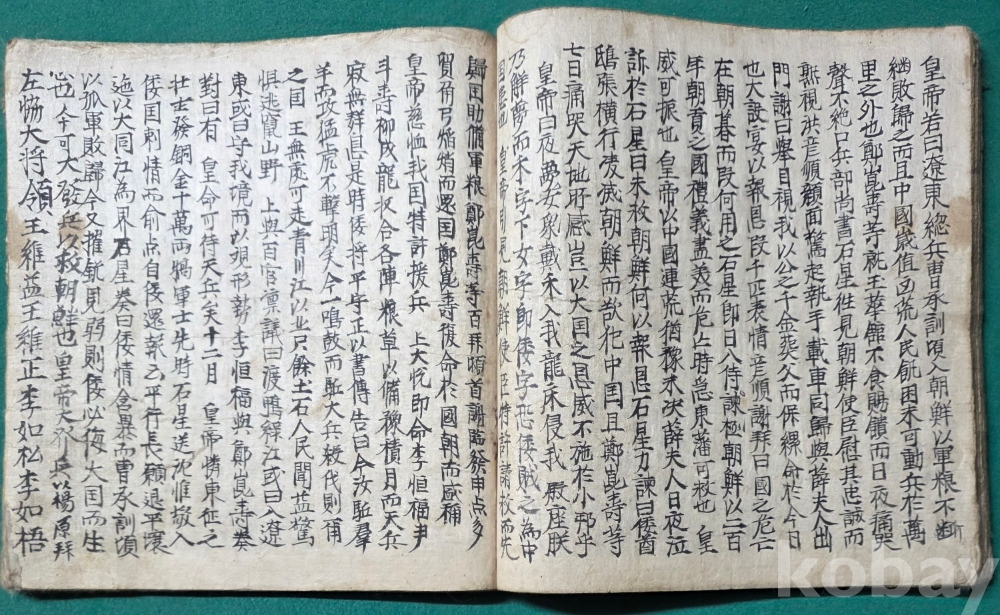 皇帝若曰遼東總兵曺承訓頃入朝鮮以軍粮不斷
繼敗歸之而且中國歲值凶荒人民飢困未可動兵於萬
里之外也鄭崑壽等就玉華館不食賜饌而日夜痛哭
聲不絶口兵部尚書石星徃見朝鮮使臣慰其忠誠而
熟視洪彦順顔面驚起執手載車同歸與薛夫人出
門謝曰擧目視我以公之千金葬父而保縲命於今日
也大設宴以報恩段千匹表情彦順謝拜曰國之危亡
在朝暮而段何用之石星即日入侍諫極朝鮮以二百
年朝貢之國禮義盡美而危亡時急東藩可救也 皇
威可振也 皇帝以中國連荒猶豫未决薛夫人日夜泣
訴於石星曰未救朝鮮何以報恩石星力諫曰倭酋
鴟張横行侵滅朝鮮而欲犯中囯且鄭崑壽等
七日痛哭天地肝感豈以大囯之恩威不施於小邦乎
皇帝曰夜夢女象戴禾入我龍床侵我殿座朕
乃解夢而禾字下女字即倭字恐倭賊之為中
囯患也 皇帝 朝鮮使臣待許請救而先
歸囯助備軍粮鄭崑壽等百拜頓首謝恩發申点多
貿角弓焰焇而還囯鄭崑壽復命於國朝而感稱
皇帝慈恤我囯特許援兵 上大悅即命李恒福尹
斗壽柳成龍收合各陣粮草以備豫積月而天兵
寂無群息是時倭将平字正以書傳告曰今汝駈羣
羊而攻猛虎不暫明矣今一鳴鼓而駈大兵殺伐則甫
之囯王無處可走青川江以北只餘土石人民聞益驚
惧逃竄山野 上與百官禀議曰渡鴨綠江或曰入遼
東或曰守我境而以現形勢李恒福與鄭崑壽奏
對曰有 皇命可待天兵矣十二月 皇帝憐東征之
壮士發銅金十萬両犒軍士先時石星送沈惟敬入
倭囯刺情而俞点自倭還報乙平行長願退平壤
迤以大同江為界石星奏曰倭情含暴而曺承訓頃
以孤軍敗歸今又摧銳見弱則倭必侮大囯而生
心也今可大發兵以救朝鮮也皇帝大發兵以楊原拜
左恊大将領王維益王維正李如松李如梧
kobay